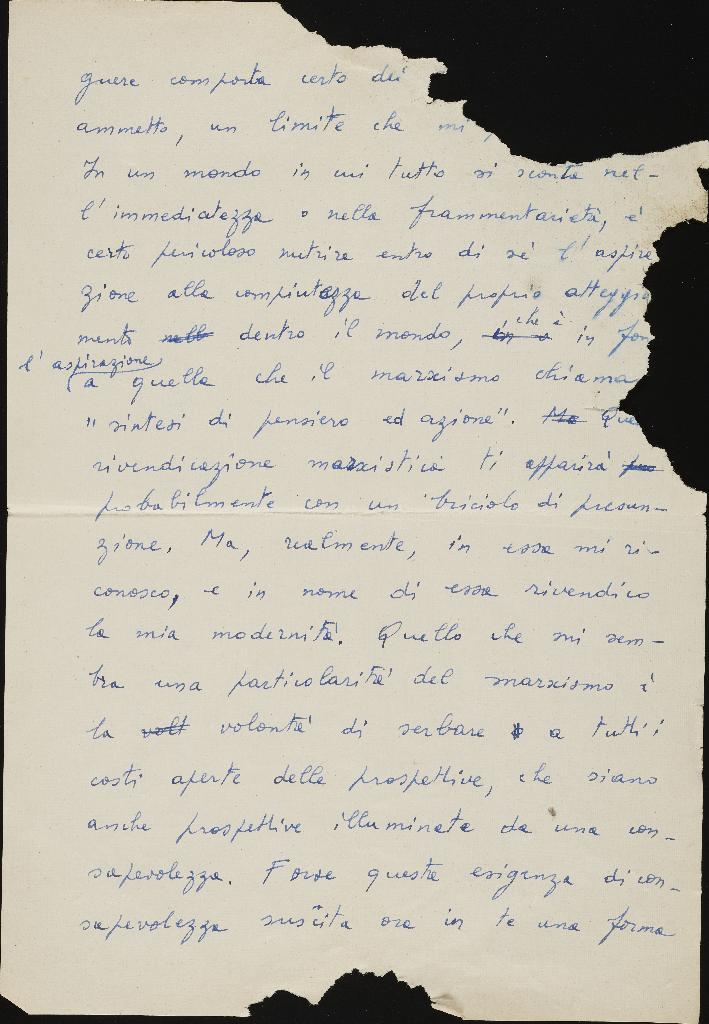 guere comporta certo dei
ammetto, un limite che mi
In un mondo in cui tutto si sconta nel-
l'immediatezza o nella frammentarietà, è
certo pericoloso nutrire entro di sé l'aspira
zione alla compiutezza del proprio atteggia
mento nelle dentro il mondo, in che è in for
l'aspirazione
a quella che il marxismo chiama
"sintesi di pensiero ed azione". Ma Que
rivendicazione marxistica ti apparirà pro
probabilmente con un briciolo di presun-
zione. Ma, realmente, in essa mi ri-
conosco, e in nome di essa rivendico
la mia modernità. Quello che mi sem-
bra una particolarità del marxismo è
la volt volontà di serbare a tutti i
costi aperte delle prospettive, che siano
anche prospettive illuminate da una con-
sapevolezza. Forse questa esigenza di con-
sapevolezza suscita ora in te una forma